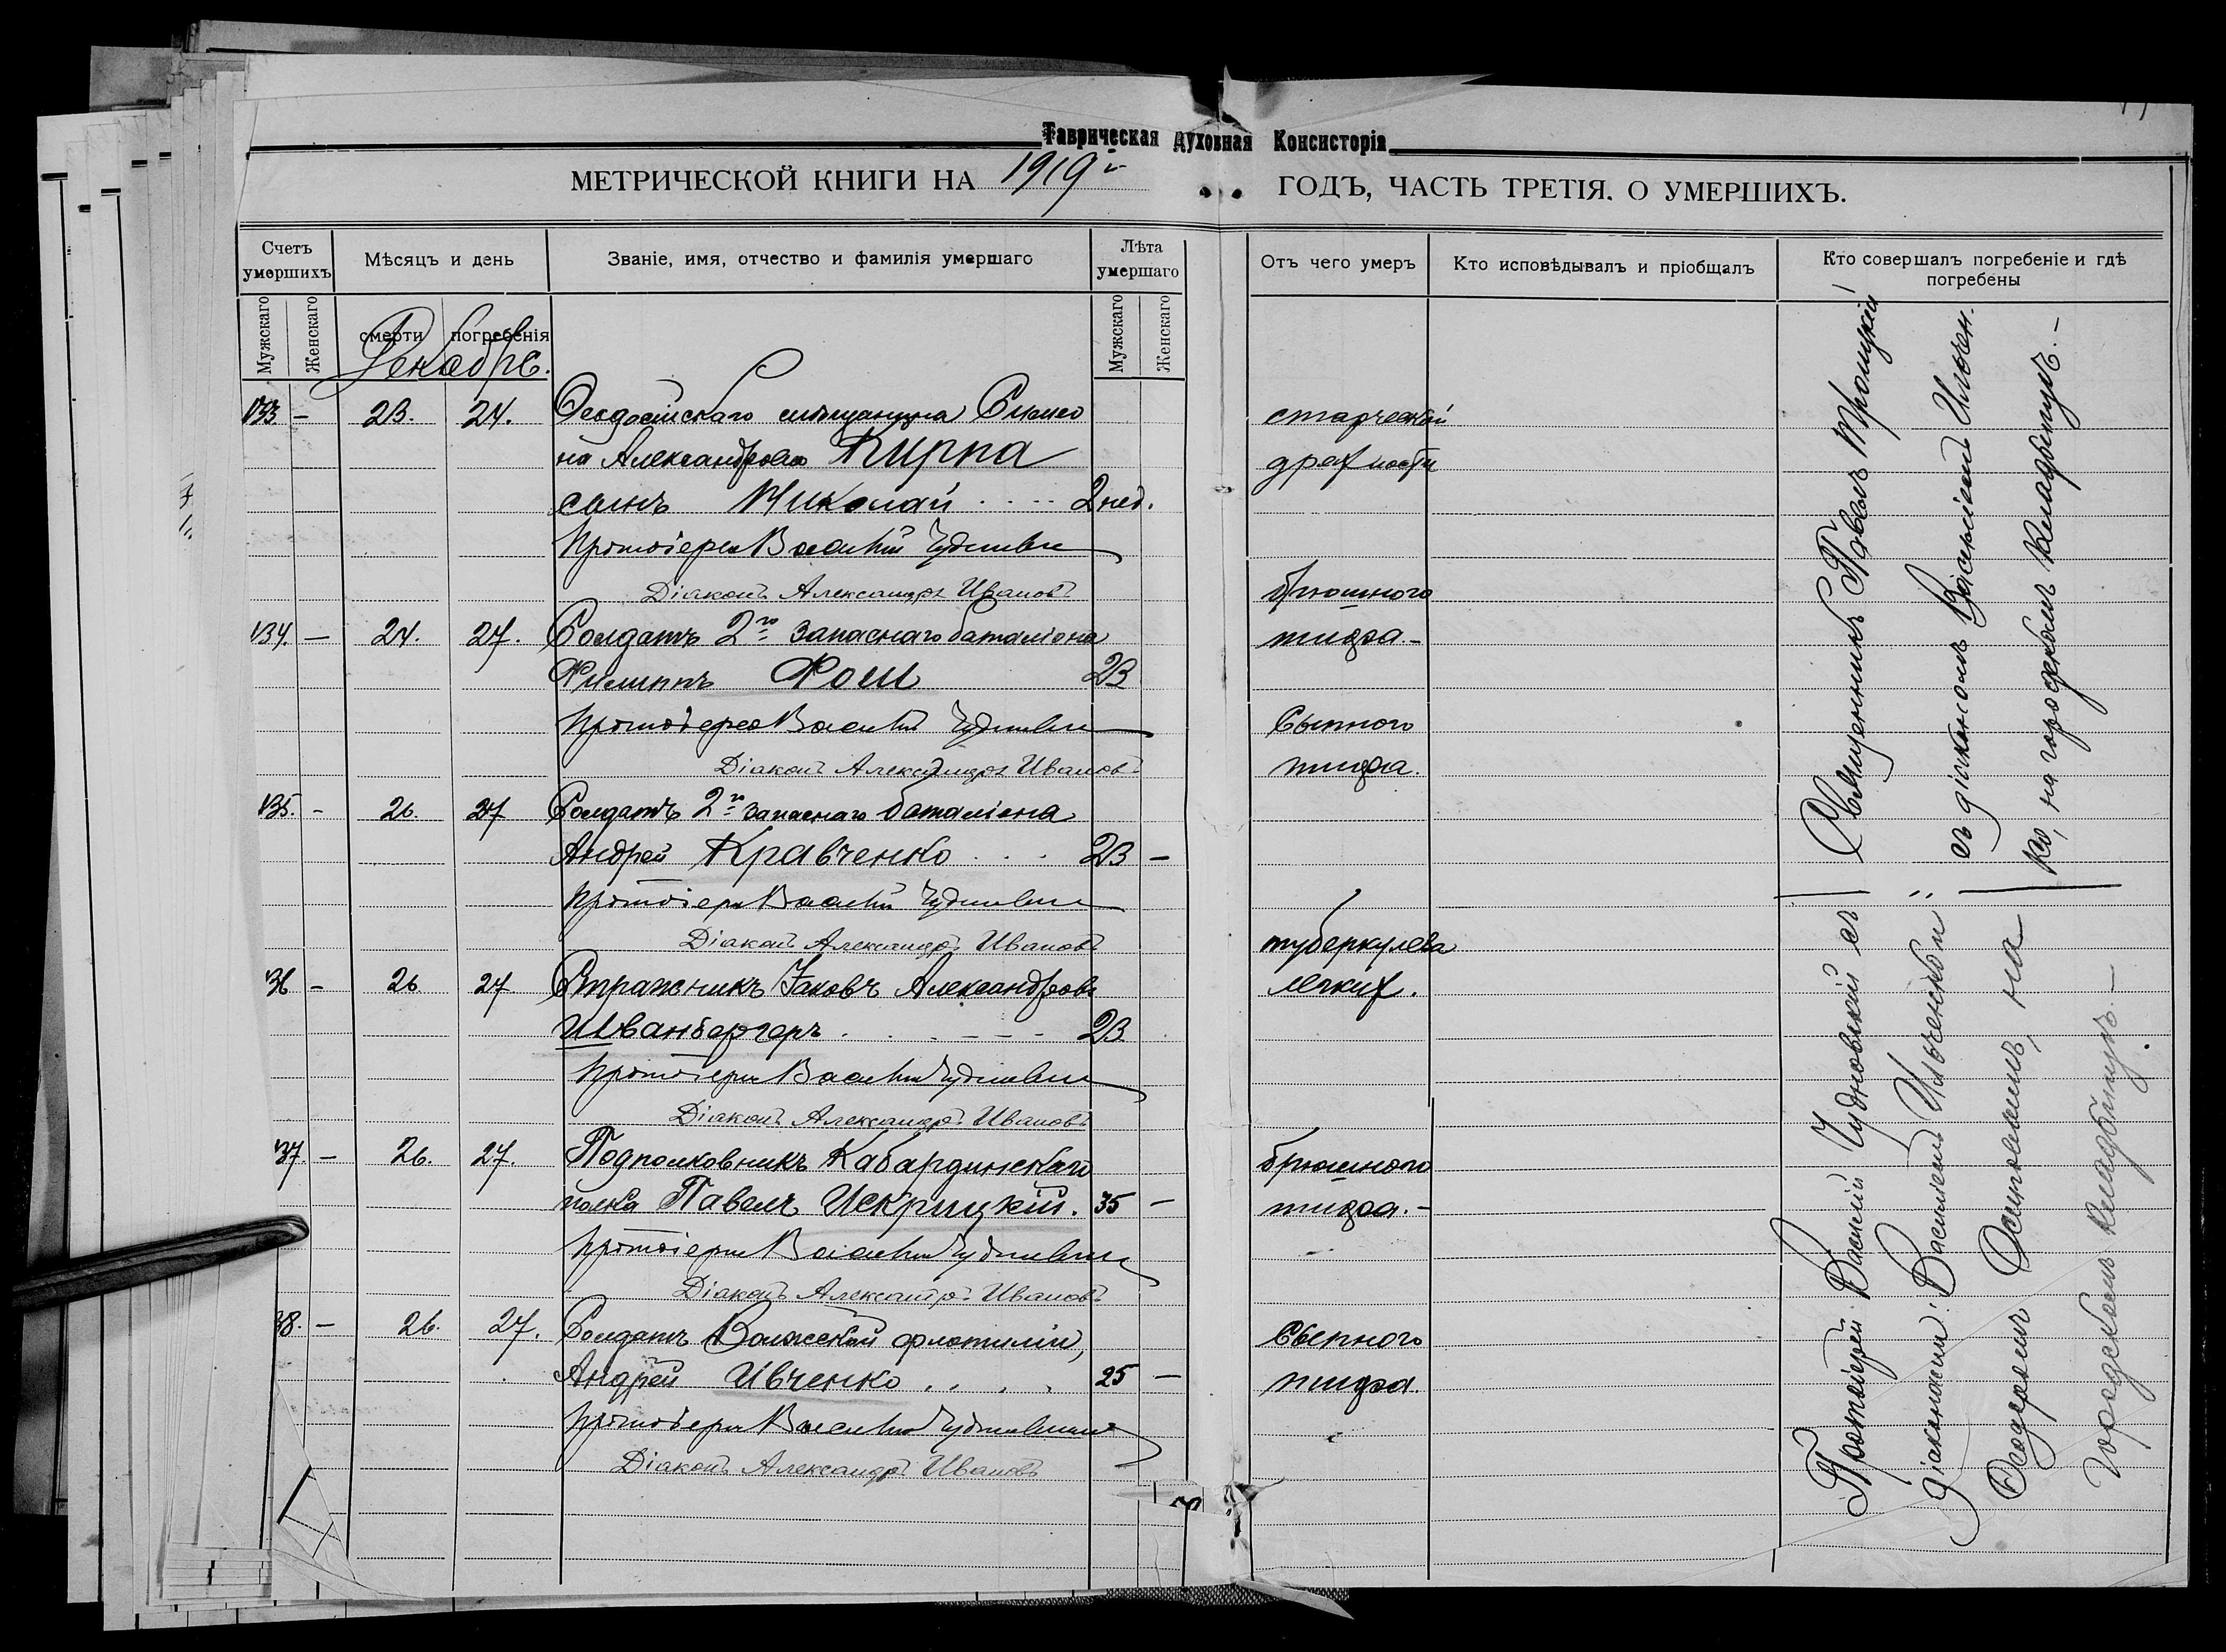 Таврическая Духовная Консисторія
МЕТРИЧЕСКОЙ КНИГИ НА 1919 г. ГОДЪ, ЧАСТЬ ТРЕТІЯ. О УМЕРШИХЪ.
Счетъ умершихъ
Мужскаго
Женскаго
Мѣсяцъ и день
смерти погребенія
Званіе, имя, отчество и фамилія умершаго
Лѣта умершаго
Мужскаго
Женскаго
Отъ чего умеръ
Кто исповѣдывалъ и пріобщалъ
Кто совершалъ погребеніе и гдѣ
погребены
Декабрь.
133. — 23. 24. Ѳеодосійскаго мѣщанина Симео
на Александрова Кирпа
сынъ Николай .... 2 нед.
Протоіерей Василій Чудновскій
Діаконъ Александръ Ивановъ
старческой
дряхлости
134. — 24. 27. Солдатъ 2го запаснаго баталіона
Филиппъ Фош 23
Протоіерей Василій Чудновскій
Діаконъ Александръ Ивановъ
брюшного
тифа. —
135. — 26. 27 Солдатъ 2го запаснаго баталіона
Андрей Кравченко . . . 23 —
Протоіерей Василій Чудновскій
Діаконъ Александръ Ивановъ
Сыпного
тифа.
136 — 26 27 Стражникъ Іаковъ Александровъ
Шванбергеръ . . . — — 23
Протоіерей Василій Чудновскій
Діаконъ Александръ Ивановъ
туберкулеза
легких.
137. — 26. 27. Подполковникъ Кабардинскаго
полка Павелъ Искрицкій. 35 —
Протоіерей Василій Чудновскій
Діаконъ Александръ Ивановъ
брюшного
тифа. —
138. — 26. 27. Солдатъ Волжской флотиліи,
Андрей Ивченко . . . . 25 —
Протоіерей Василій Чудновскій
Діаконъ Александръ Ивановъ
Сыпного
тифа.
Священникъ Павелъ Троицкій
съ діакономъ Василіемъ Ильчен.
ко, на городскомъ кладбищѣ. —
Протоіерей Василій Чудновскій съ
діаконами: Василіемъ Ильченкой и
Ѳеодоромъ на
городскомъ кладбищѣ. —